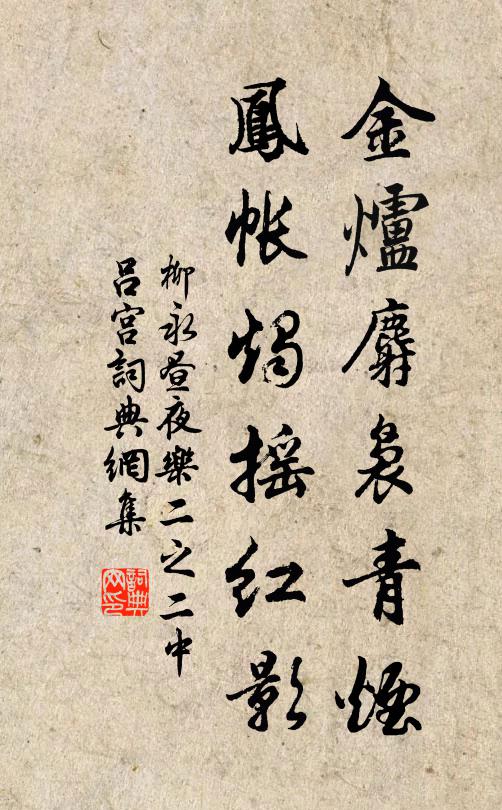 金爐麝裊青煙
鳳帳燭搖紅影
柳永晝夜樂二之二中
呂宮詞典網集
詞典網印